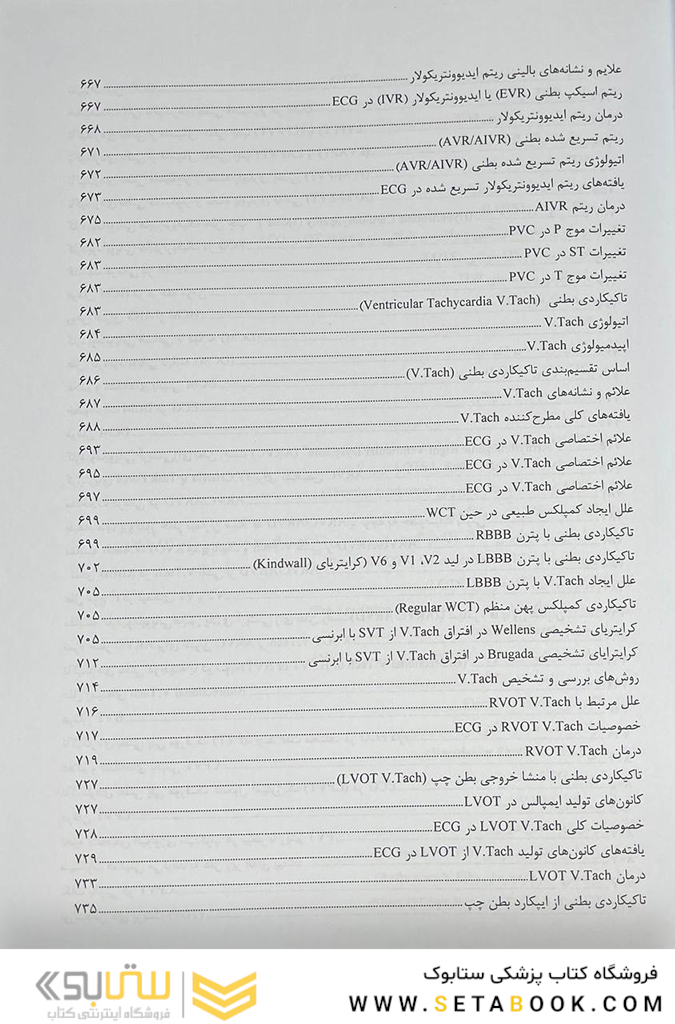 علایم و نشانه‌های بالینی ریتم ایدیوونتریکولار ۶۶۷
ریتم اسیکپ بطنی (EVR) یا ایدیوونتریکولار (IVR) در ECG ۶۶۷
درمان ریتم ایدیوونتریکولار ۶۶۸
ریتم تسریع شده بطنی (AVR/AIVR) ۶۷۱
اتیولوژی ریتم تسریع شده بطنی (AVR/AIVR) ۶۷۲
یافته‌های ریتم ایدیوونتریکولار تسریع شده در ECG ۶۷۳
درمان ریتم AIVR ۶۷۵
تغییرات موج P در PVC ۶۸۲
تغییرات ST در PVC ۶۸۳
تغییرات موج T در PVC ۶۸۳
تاکیکاردی بطنی (Ventricular Tachycardia V.Tach) ۶۸۳
اتیولوژی V.Tach ۶۸۴
اپیدمیولوژی V.Tach ۶۸۵
اساس تقسیم‌بندی تاکیکاردی بطنی (V.Tach) ۶۸۶
علائم و نشانه‌های V.Tach ۶۸۷
یافته‌های کلی مطرح‌کننده V.Tach ۶۸۸
علائم اختصاصی V.Tach در ECG ۶۹۳
علائم اختصاصی V.Tach در ECG ۶۹۵
علائم اختصاصی V.Tach در ECG ۶۹۷
علل ایجاد کمپلکس طبیعی در حین WCT ۶۹۹
تاکیکاردی بطنی با پترن RBBB ۶۹۹
تاکیکاردی بطنی با پترن LBBB در لید V1 ،V2 و V6 (کرایتریای Kindwall) ۷۰۲
علل ایجاد V.Tach با پترن LBBB ۷۰۵
تاکیکاردی کمپلکس پهن منظم (Regular WCT) ۷۰۵
کرایتریای تشخیصی Wellens در افتراق V.Tach از SVT با ابرنسی ۷۰۵
کرایترایای تشخیصی Brugada در افتراق V.Tach از SVT با ابرنسی ۷۱۲
روش‌های بررسی و تشخیص V.Tach ۷۱۴
علل مرتبط با RVOT V.Tach ۷۱۶
خصوصیات RVOT V.Tach در ECG ۷۱۷
درمان RVOT V.Tach ۷۱۹
تاکیکاردی بطنی با منشا خروجی بطن چپ (LVOT V.Tach) ۷۲۷
کانون‌های تولید ایمپالس در LVOT ۷۲۷
خصوصیات کلی LVOT V.Tach در ECG ۷۲۸
یافته‌های کانون‌های تولید V.Tach از LVOT در ECG ۷۲۹
درمان LVOT V.Tach ۷۳۳
تاکیکاردی بطنی از اپیکارد بطن چپ ۷۳۵
فروشگاه کتاب پزشکی ستابوک
WWW.SETABOOK.COM
ستابوک
فروشگاه اینترنتی کتاب